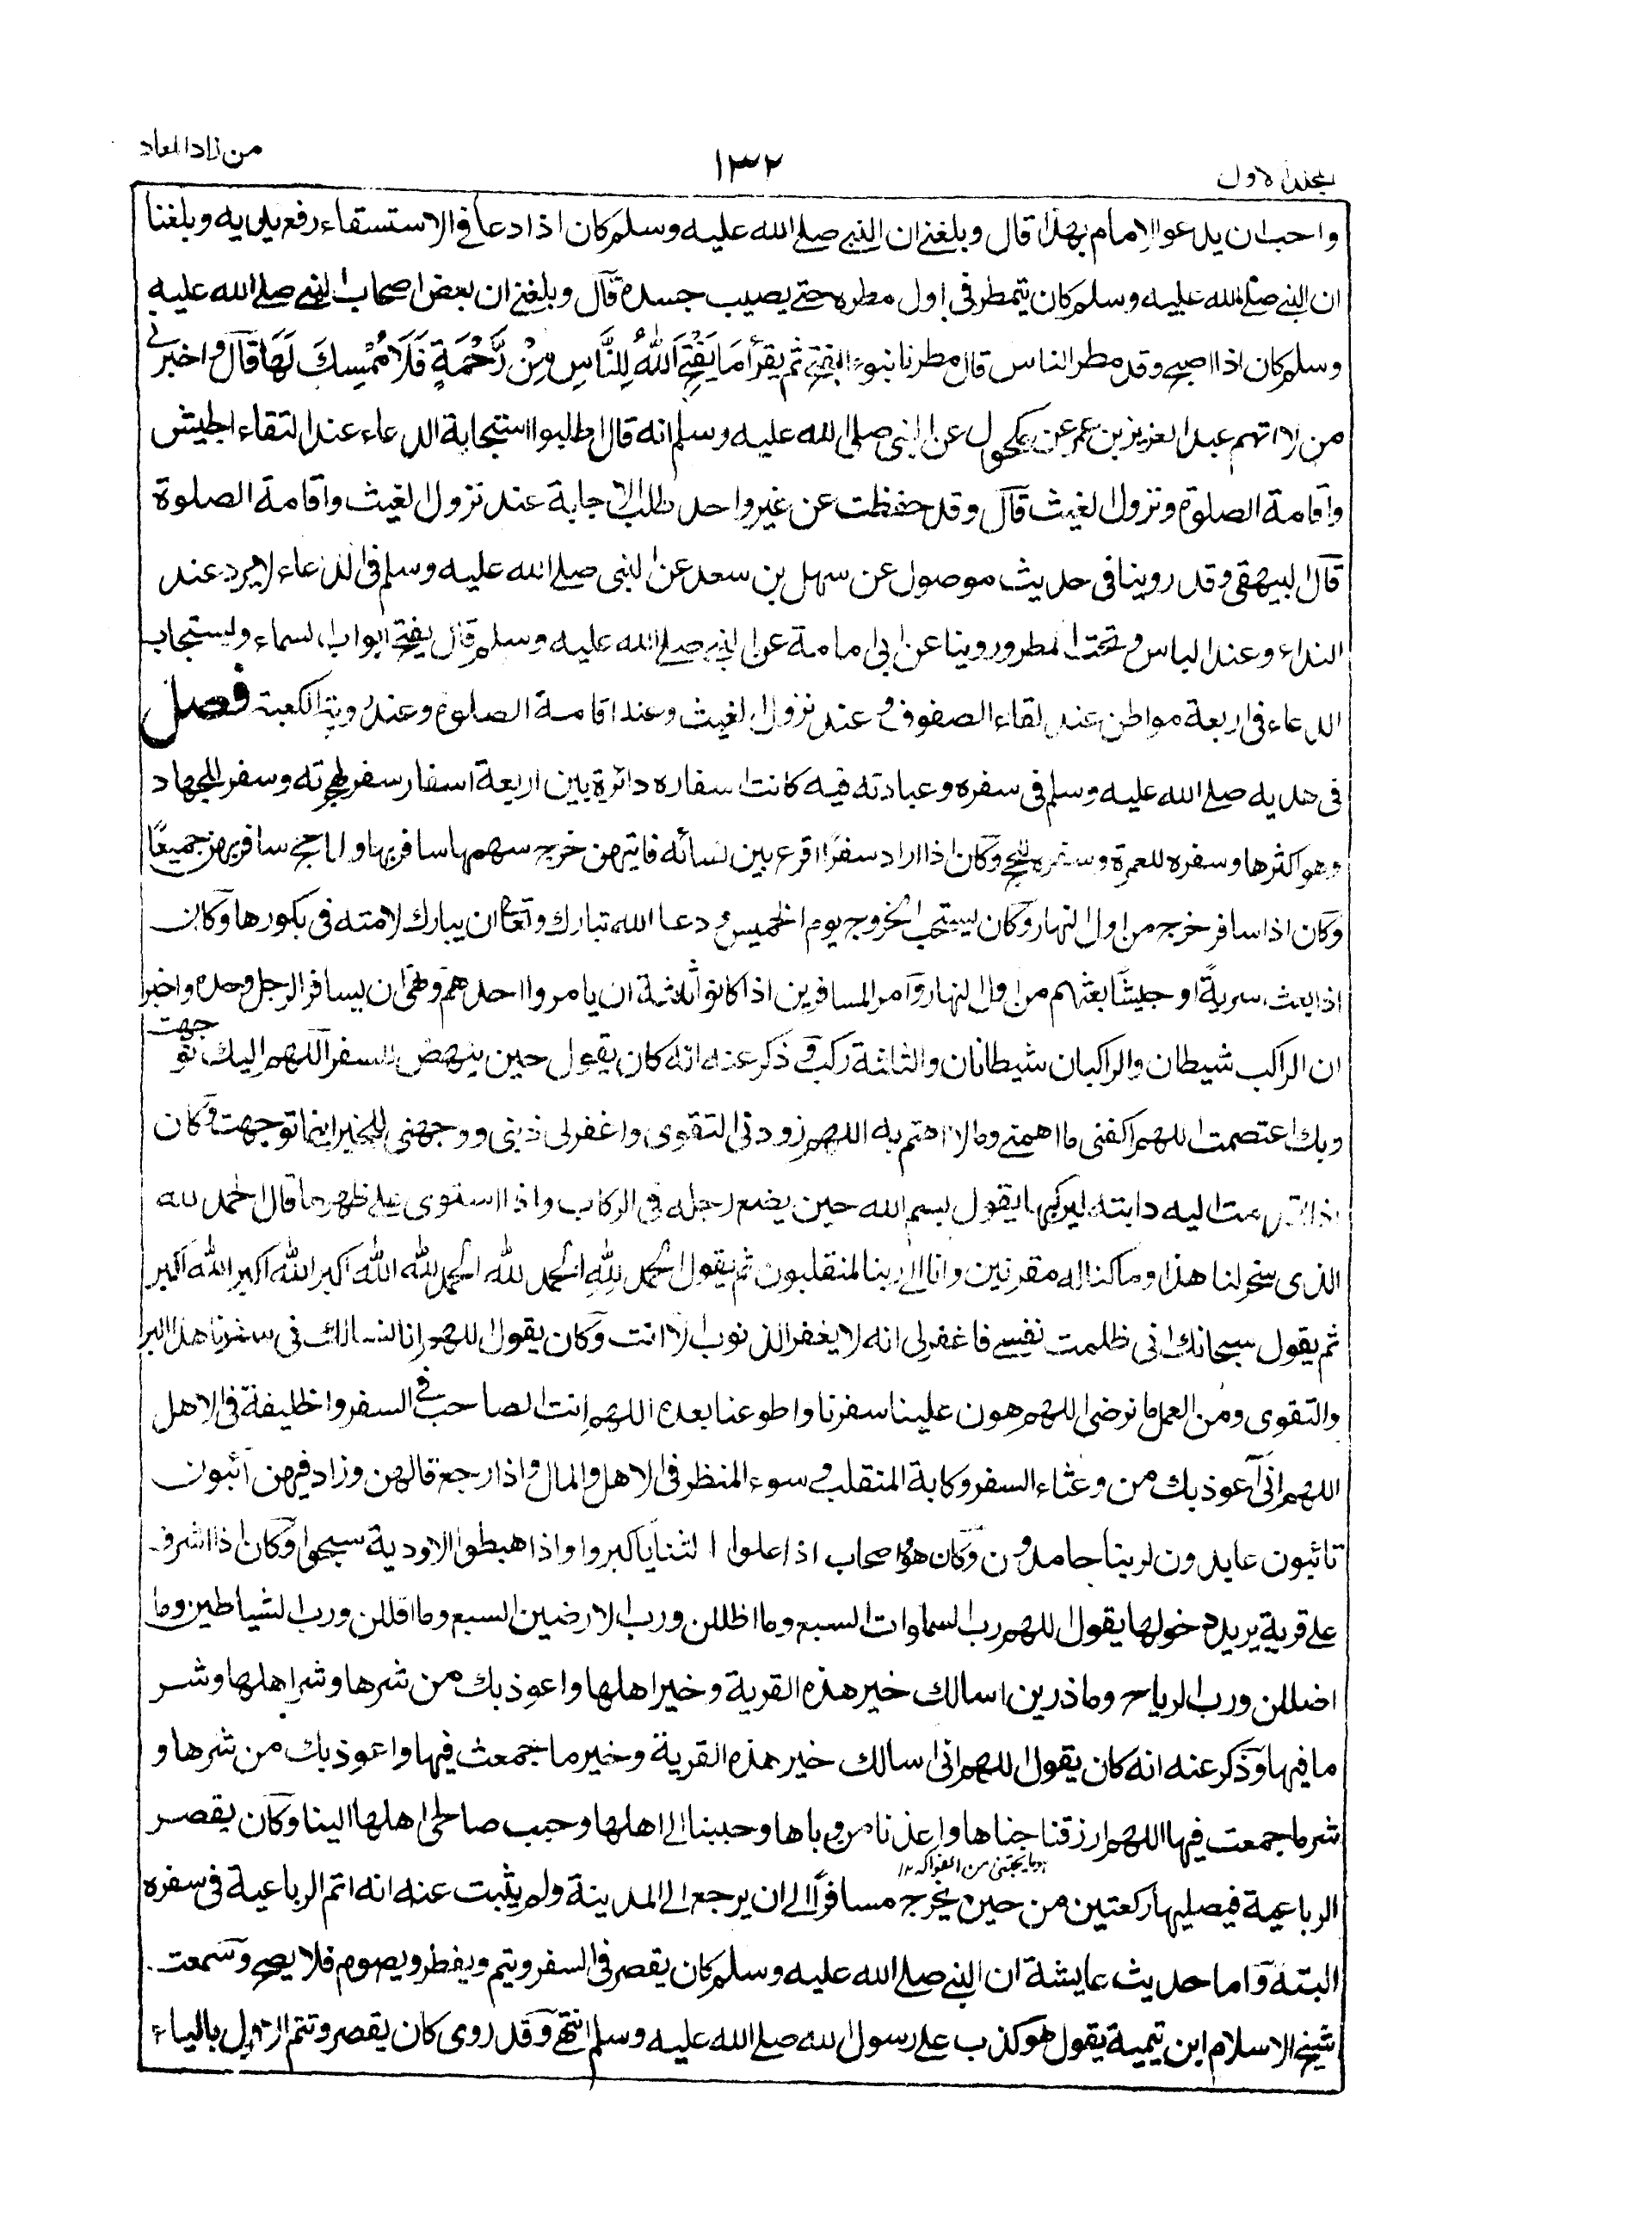 المجلد الاول
١٣٢
من زاد المعاد
واحب ان يدعو الامام بهذا قال وبلغني ان النبي صلى الله عليه وسلم كان اذا دعا في الاستسقاء رفع يديه وبلغنا
ان النبي صلى الله عليه وسلم كان يتمطر في اول مطره حتى يصيب جسده قال وبلغني ان بعض اصحاب النبي صلى الله عليه
وسلم كان اذا اصبح وقد مطر الناس قال مطرنا بنوء الفتح ثم يقرأ مَا يَفْتَحِ اللهُ لِلنَّاسِ مِنْ رَّحْمَةٍ فَلَا مُمْسِكَ لَهَا قال واخبرني
من لا اتهم عبد العزيز بن عمر عن مكحول عن النبي صلى الله عليه وسلم انه قال اطلبوا استجابة الدعاء عند التقاء الجيش
واقامة الصلوة ونزول الغيث قال وقد حفظت عن غير واحد طلب الاجابة عند نزول الغيث واقامة الصلوة
قال البيهقي وقد روينا في حديث موصول عن سهل بن سعد عن النبي صلى الله عليه وسلم في الدعاء لا يرد عند
النداء وعند الباس وتحت المطر وروينا عن ابي امامة عن النبي صلى الله عليه وسلم قال يفتح ابواب السماء ويستجاب
الدعاء في اربعة مواطن عند لقاء الصفوف وعند نزول الغيث وعند اقامة الصلوة وعند رؤية الكعبة فصل
في هديه صلى الله عليه وسلم في سفره وعبادته فيه كانت اسفاره دائرة بين اربعة اسفار سفر لهجرته وسفر للجهاد
وهو اكثرها وسفره للعمرة وسفره للحج وكان اذا اراد سفرًا اقرع بين نسائه فايتهن خرج سهمها سافر بها ولما حج سافر بهن جميعًا
وكان اذا سافر خرج من اول النهار وكان يستحب الخروج يوم الخميس ودعا الله تبارك وتعالى ان يبارك لامته في بكورها وكان
اذا بعث سريةً او جيشًا بعثهم من اول النهار وامر المسافرين اذا كانوا ثلثة ان يامروا احدهم ونهى ان يسافر الرجل وحده واخبر
ان الراكب شيطان والراكبان شيطانان والثلثة ركب وذكر عنه انه كان يقول حين ينهض للسفر اللهم اليك توجهت
وبك اعتصمت اللهم اكفني ما اهمني وما لا اهتم به اللهم زودني التقوى واغفر لي ذنبي ووجهني للخير اينما توجهت وكان
اذا قدمت اليه دابته ليركبها يقول بسم الله حين يضع رجله في الركاب واذا استوى على ظهرها قال الحمد لله
الذي سخر لنا هذا وما كنا له مقرنين وانا الى ربنا لمنقلبون ثم يقول الحمد لله الحمد لله الحمد لله الله اكبر الله اكبر الله اكبر
ثم يقول سبحانك اني ظلمت نفسي فاغفر لي انه لا يغفر الذنوب الا انت وكان يقول اللهم انا نسالك في سفرنا هذا البر
والتقوى ومن العمل ما ترضى اللهم هون علينا سفرنا واطو عنا بعده اللهم انت الصاحب في السفر والخليفة في الاهل
اللهم اني اعوذ بك من وعثاء السفر وكابة المنقلب وسوء المنظر في الاهل والمال واذا رجع قالهن وزاد فيهن آئبون
تائبون عابدون لربنا حامدون وكان هو واصحابه اذا علوا الثنايا كبروا واذا هبطوا الاودية سبحوا وكان اذا اشرف
على قرية يريد دخولها يقول اللهم رب السماوات السبع وما اظللن ورب الارضين السبع وما اقللن ورب الشياطين وما
اضللن ورب الرياح وما ذرين اسالك خير هذه القرية وخير اهلها واعوذ بك من شرها وشر اهلها وشر
ما فيها وذكر عنه انه كان يقول اللهم اني اسالك خير هذه القرية وخير ما جمعت فيها واعوذ بك من شرها و
شر ما جمعت فيها اللهم ارزقنا جناها واعذنا من وباها وحببنا الى اهلها وحبب صالحي اهلها الينا وكان يقصر
اي ما يجتنى من الفواكه ١٢
الرباعية فيصليها ركعتين من حين يخرج مسافرًا الى ان يرجع الى المدينة ولم يثبت عنه انه اتم الرباعية في سفره
البتة واما حديث عايشة ان النبي صلى الله عليه وسلم كان يقصر في السفر ويتم ويفطر ويصوم فلا يصح وسمعت
شيخ الاسلام ابن تيمية يقول هو كذب على رسول الله صلى الله عليه وسلم انتهى وقد روي كان يقصر وتتم الاول بالياء